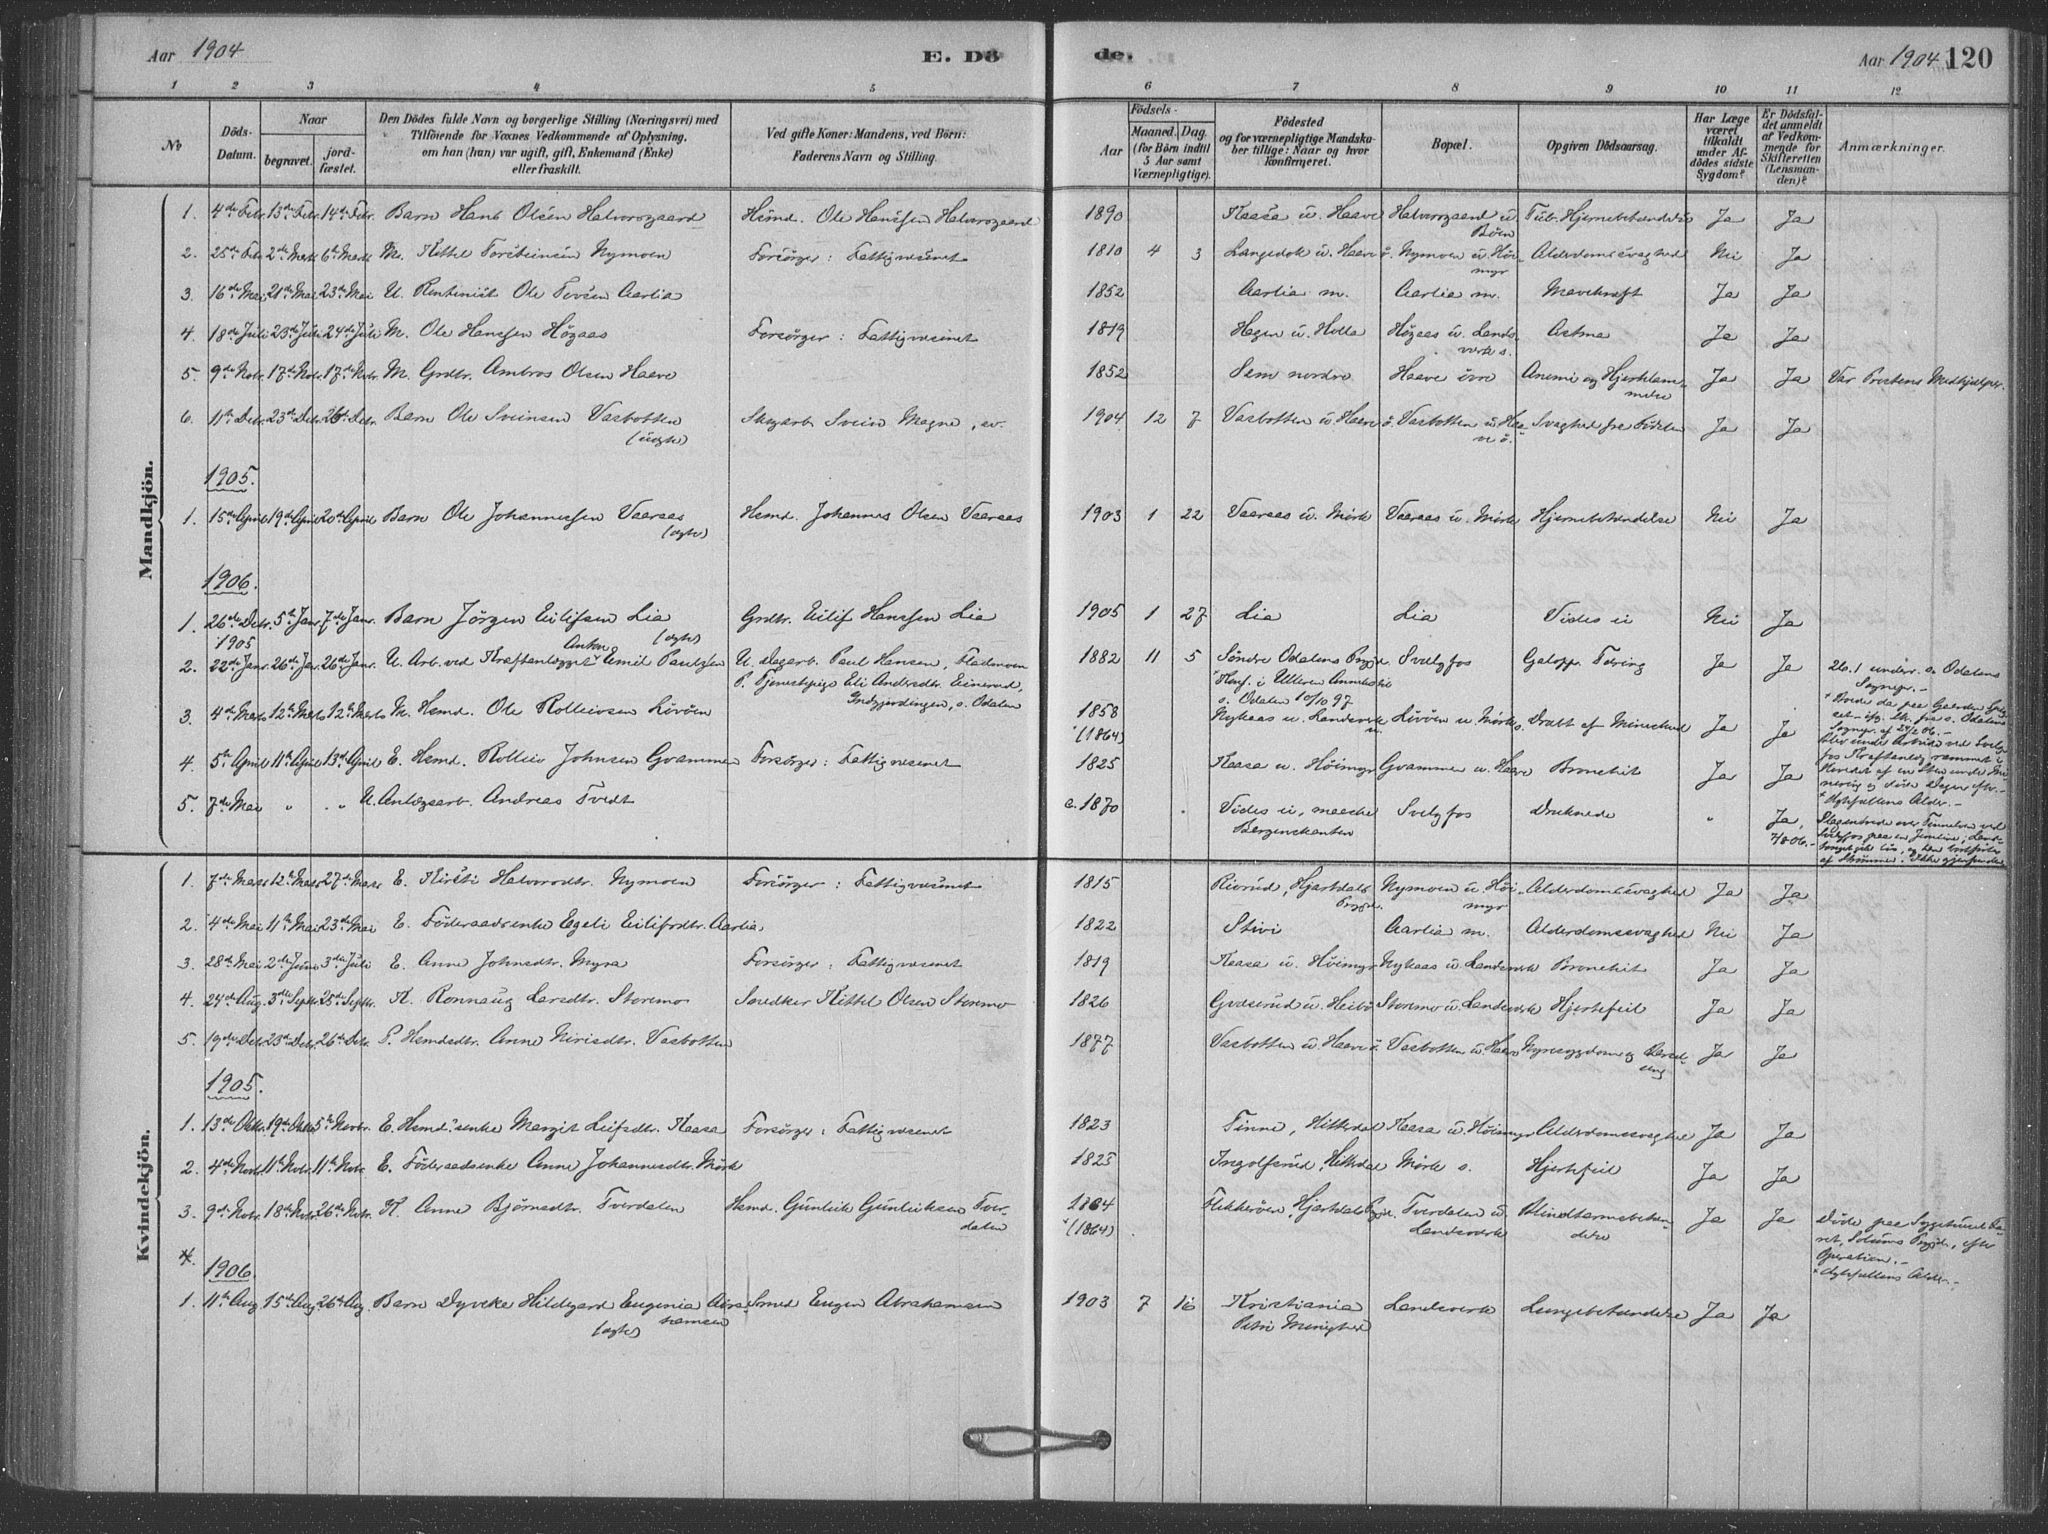 Aar 1904 E. Dö de. Aar 1904 120
1 2 3 4 5 6 7 8 9 10 11 12
No
Döds-Datum.
Naar
begravet. jordfæstet.
Den Dödes fulde Navn og borgerlige Stilling (Næringsvei) med
Tilföiende for Voxnes Vedkommende af Oplysning,
om han (hun) var ugift, gift, Enkemand (Enke)
eller fraskilt.
Ved gifte Koner: Mandens, ved Børn:
Faderens Navn og Stilling.
Födsels-
Aar Maaned. Dag.
(for Börn indtil
5 Aar samt
Værnepligtige).
Födested
og for værnepligtige Mandskaber tillige: Naar og hvor
konfirmeret.
Bopæl.
Opgiven Dödsaarsag.
Har Læge
været
tilkaldt
under Afdödes sidste
Sygdom?
Er Dödsfaldet anmeldt
af Vedkommende for
Skifteretten
(Lensmanden)?
Anmærkninger.
Mandkjön.
1. 4de Febr. 13de Febr. 14de Febr. Barn Hans Olsen Halvorsgaard Hsmd. Ole Hanssen Halvorsgaard 1890 Kaasa u. Haave Halvorsgaard u. Böen Tub. Hjernebetændelse Ja Ja
2. 25de Febr. 2den Marts 6te Marts M. Kittel Torsteinsen Nymoen Forsörger: Fattigvæsenet 1810 4 3 Langedok u. Haave ö. Nymoen u. Höimyr Alderdomssvaghed Nei Ja
3. 16de Mai 21de Mai 23de Mai U. Rentenist Ole Tovsen Aarlia 1852 Aarlia m. Aarlia m. Mavekræft Ja Ja
4. 18de Juli 23de Juli 24de Juli M. Ole Hanssen Högaas Forsörger: Fattigvæsenet 1819 Hagen u. Holla Högaas u. Landsverk s. Astma Ja Ja
5. 9de Novbr. 17de Novbr. 17de Novbr. M. Grdbr. Ambros Olsen Haave 1852 Sem nordre Haave övre Anemi og Hjertelammelse Ja Ja Var Prestens Medhjelper.
6. 11te Decbr. 23de Decbr. 26de Decbr. Barn Ole Sveinsen Vasbotten (uægte) Skogarb. Svein Magne, sv. 1904 12 7 Vasbotten u. Haave ö. Vasbotten u. Haave ö. Svaghed fra Födslen Ja Ja
1905.
1. 15de April 19de April 20de April Barn Ole Johannessen Vaaraas (ægte) Hsmd. Johannes Olsen Vaaraas 1903 1 22 Vaaraas u. Mörk Vaaraas u. Mörk Hjernebetændelse Nei Ja
1906.
1. 26de Decbr. 1905 5te Janr. 7de Janr. Barn Jörgen Eilifsen Lia (ægte) Grdbr. Eilif Hanssen Lia 1905 1 27 Lia Lia Vides ei Nei Ja
2. 22de Janr. 26de Janr. 26de Janr. U. Arb. ved Kraftanlægget Anton Emil Paulsen U. Dagarb. Paul Hansen, Fladmoen 1882 11 5 Söndre Odalens Prgjd. Svelgfos Galopp. Tæring Ja Ja 26.1 underr. s. Odalens Sognepr. —
P. Tjenestpige Eli Andersdtr. Einerud, Konf. i Ulleren Annexs. til
Gndgjordingen, s. Odalen s. Odalen 10/10 97
3. 4de Marts 12te Marts 12te Marts M. Hsmd. Ole Rolleivsen Livöen 1858 (1864) Nykaas u. Landsverk Livöen u. Mörk s. Dræbt af Mineskud Ja Ja
4. 5te April 11te April 13de April E. Hsmd. Rolleiv Johnsen Gvammen Forsörger: Fattigvæsenet 1825 Kaasa u. Höimyr Gvammen u. Haave Bronchit Ja Ja
5. 7de Mai " " U. Anlægsarb. Andreas Tvedt c. 1870 Vides ei, maaske Bergenskanten Svelgfos Druknede " Ja,
Kvindekjön.
1. 7de Marts 12te Marts 27de Marts E. Kirsti Halvorsdtr. Nymoen Forsörger: Fattigvæsenet 1815 Riorud, Hjartdals Prgjd. Nymoen u. Höimyr Alderdomssvaghed Ja Ja
2. 4de Mai 11te Mai 23de Mai E. Föderaadsenke Egeli Eilifsdtr. Aarlia 1822 Stivi Aarlia m. Alderdomssvaghed Nei Ja
3. 28de Mai 2den Juni 3die Juli E. Anne Johnsdtr. Myra Forsörger: Fattigvæsenet 1819 Kaasa u. Höimyr Nykaas u. Landsverk Bronchit Ja Ja
4. 24de Aug. 3die Septbr. 25de Septbr. K. Rønnaug Larsdtr. Storemo Snedker Kittel Olsen Storemo 1826 Gvaserud u. Heibö Storemo u. Landsverk Hjertefeil Ja Ja
5. 19de Decbr. 23de Decbr. 26de Decbr. P. Hsmdsdtr. Anne Nirisdtr. Vasbotten 1877 Vasbotten u. Haave ö. Vasbotten u. Haave Nyresygdom og Barselseng Ja Ja
1905.
1. 13de Oktbr. 19de Oktbr. 5te Novbr. E. Hsmd.'senke Margit Leifsdtr. Kaasa Forsörger: Fattigvæsenet 1823 Tinne, Hitterdal Kaasa u. Höimyr Alderdomssvaghed Ja Ja
2. 4de Novbr. 11te Novbr. 11te Novbr. E. Föderaadsenke Anne Johannesdtr. Mörk 1825 Ingolfsrud, Hitterdal Mörk s. Hjertefeil Ja Ja
3. 9de Novbr. 18de Novbr. 26de Novbr. K. Anne Björnsdtr. Tverdalen Hsmd. Gunleik Gunleiksen Tverdalen 1864 (1864) Flekkeröen, Hjartdals Prgjd. Tverdalen u. Landsverk Blindtarmsbetændelse Ja Ja Döde paa Sygehuset Faret, Solums Prgjd., efter Operation. —
4.
1906.
1. 11te Aug. 15de Aug. 26de Aug. Barn Dyveke Hildegard Eugenia Abrahamsen (ægte) Smed Eugen Abrahamsen 1903 7 16 Kristiania Petri Menighed Landsverk Lungebetændelse Ja Ja